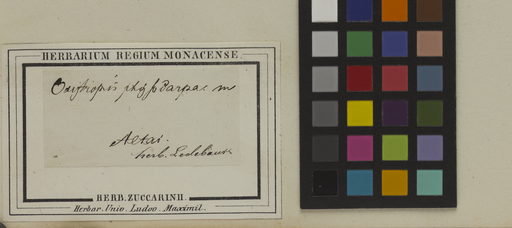 HERBARIUM REGIUM MONACENSE.
Oxytropis physocarpa m
Altai.
herb. Ledebour
HERB. ZUCCARINII.
Herbar. Univ. Ludov. Maximil.